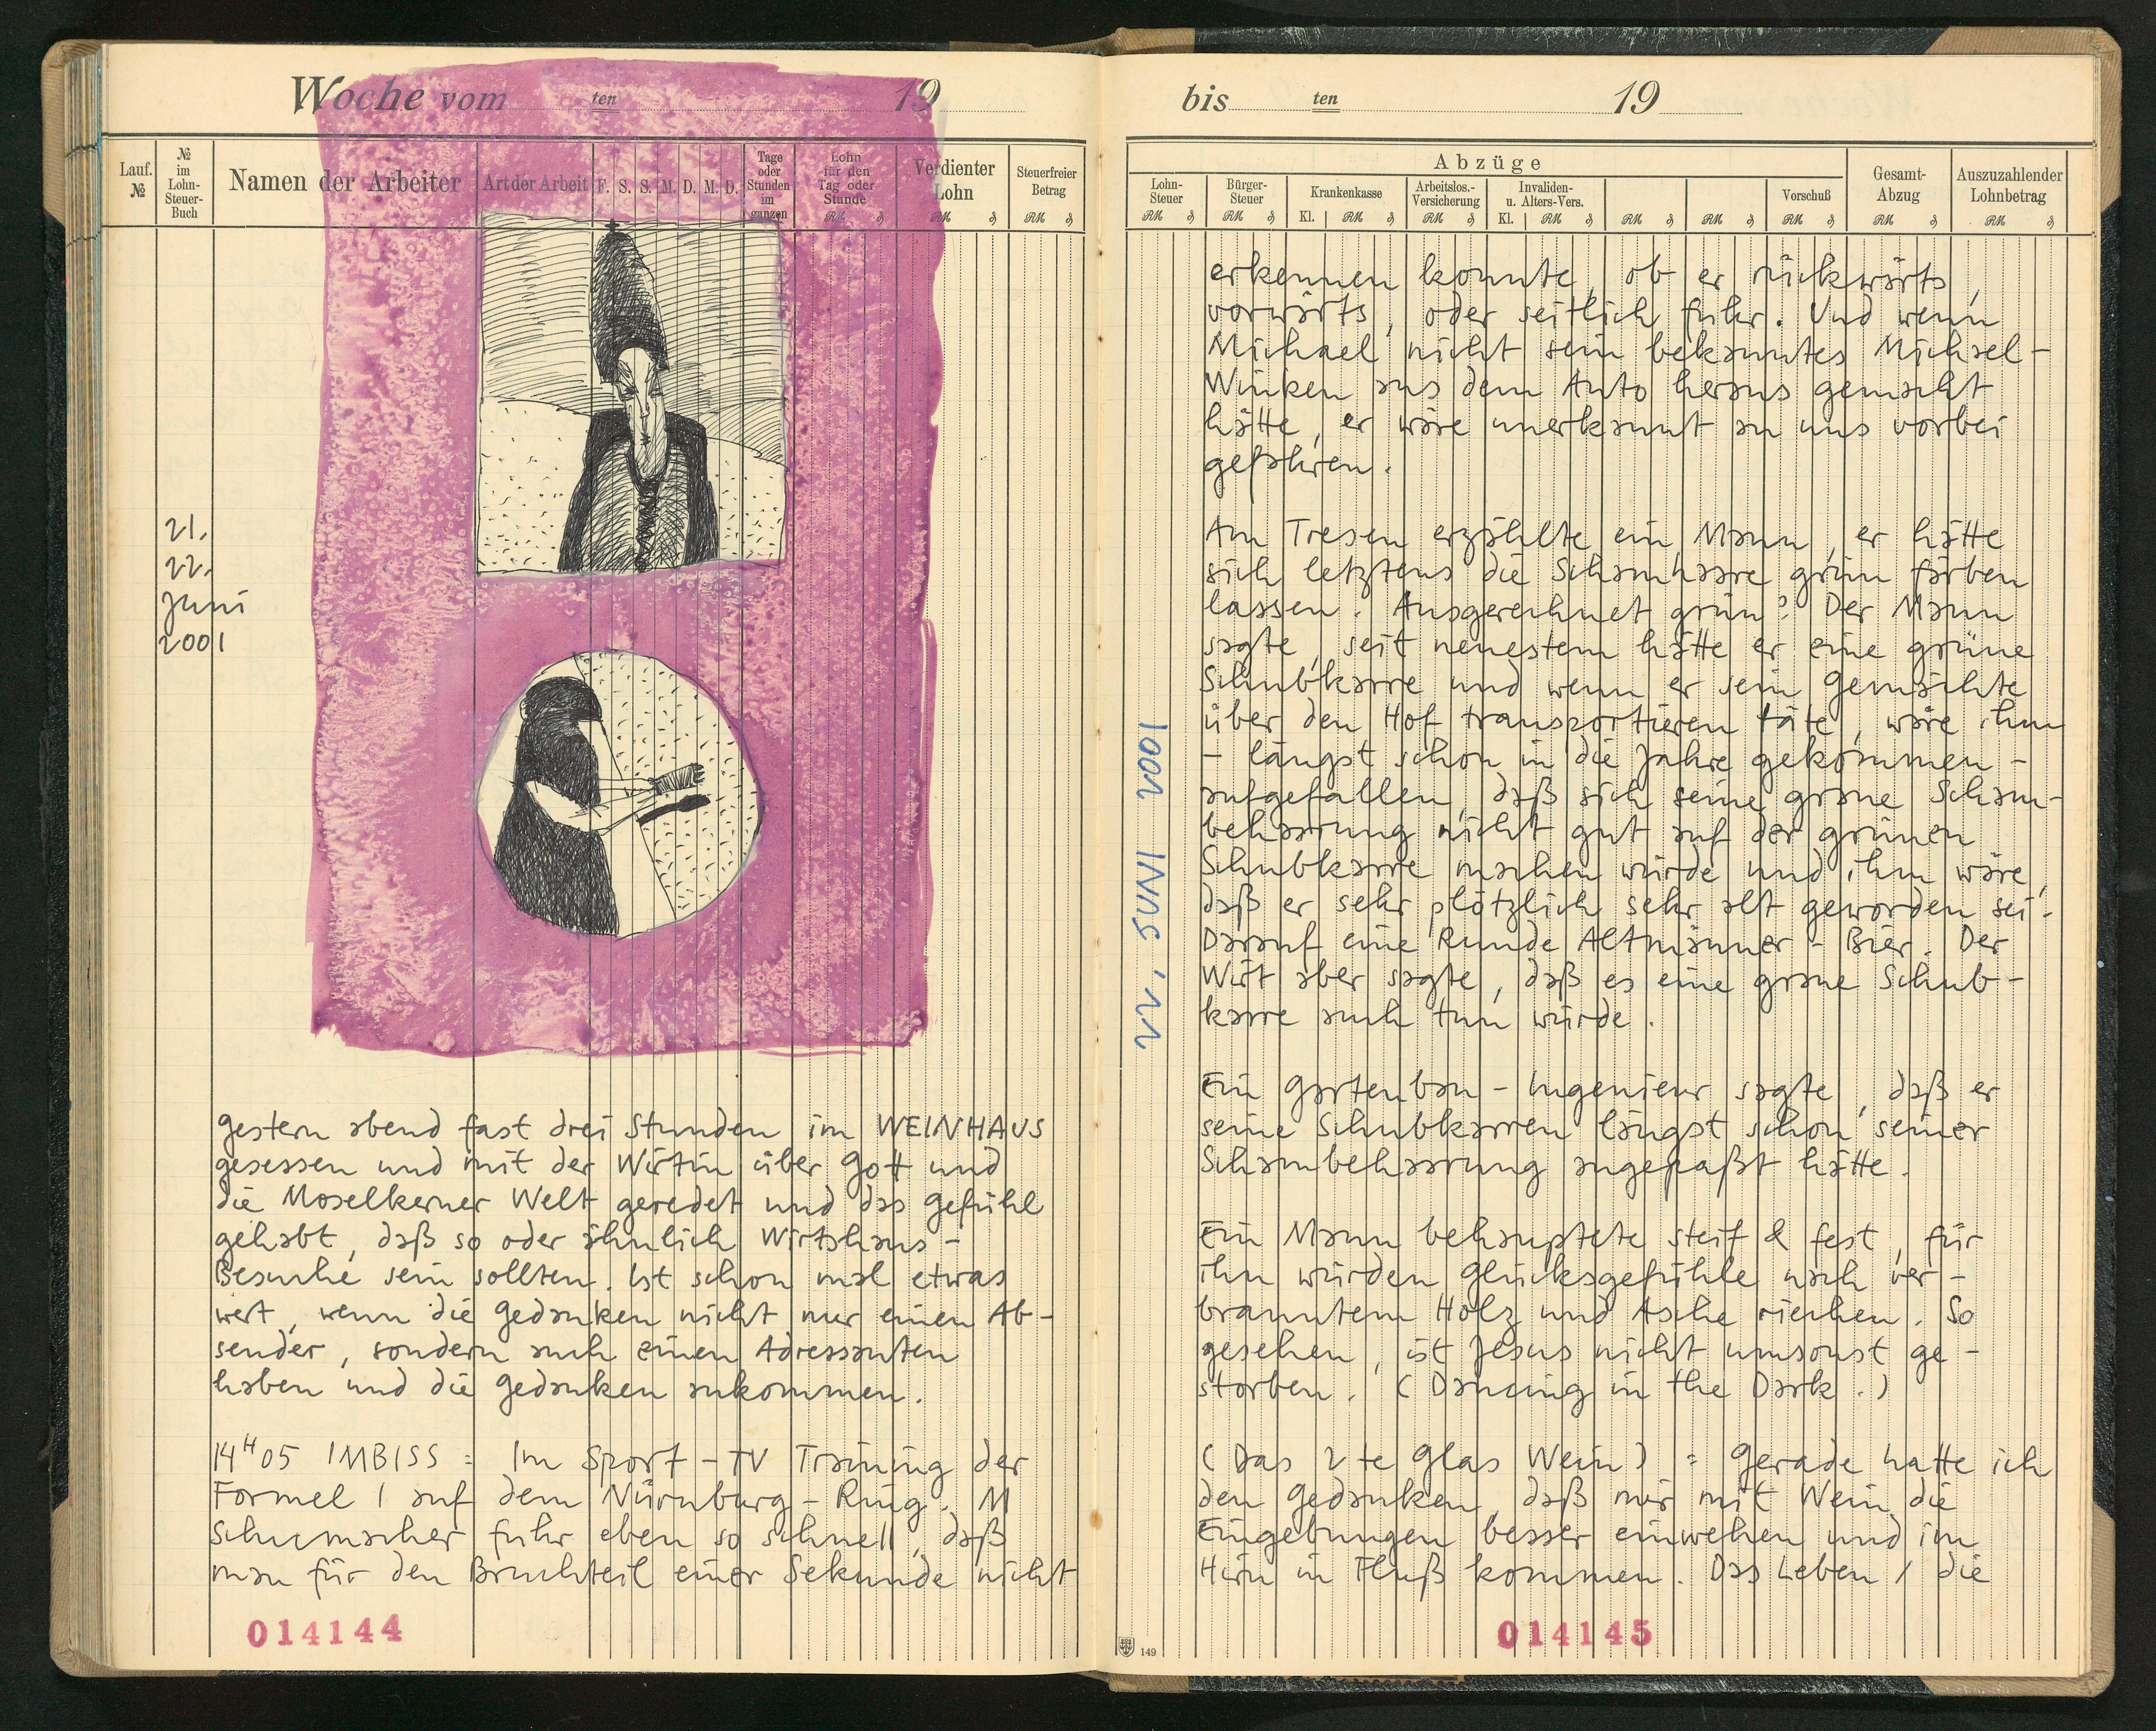 Woche vom ten 19
Lauf. № | № im Lohn-Steuer-Buch | Namen der Arbeiter | Art der Arbeit | F. | S. | S. | M. | D. | M. | D. | Tage oder Stunden im ganzen | Lohn für den Tag oder Stunde RM ₰ | Verdienter Lohn RM ₰ | Steuerfreier Betrag RM ₰
21.
22.
Juni
2001
gestern abend fast drei Stunden im WEINHAUS
gesessen und mit der Wirtin über Gott und
die Moselkerner Welt geredet und das Gefühl
gehabt, daß so oder ähnlich Wirtshaus-
Besuche sein sollten. Ist schon mal etwas
wert, wenn die Gedanken nicht nur einen Ab-
sender, sondern auch einen Adressanten
haben und die Gedanken ankommen.
14H05 IMBISS : Im Sport-TV Training der
Formel 1 auf dem Nürnburg-Ring. M
Schumacher fuhr eben so schnell, daß
man für den Bruchteil einer Sekunde nicht
014144
bis ten 19
Abzüge
Lohn-Steuer RM ₰ | Bürger-Steuer RM ₰ | Krankenkasse Kl. RM ₰ | Arbeitslos.-Versicherung RM ₰ | Invaliden- u. Alters-Vers. Kl. RM ₰ | RM ₰ | RM ₰ | Vorschuß RM ₰ | Gesamt-Abzug RM ₰ | Auszuzahlender Lohnbetrag RM ₰
22. JUNI 2001
erkennen konnte, ob er rückwärts,
vorwärts, oder seitlich fuhr. Und wenn
Michael nicht sein bekanntes Michael-
Winken aus dem Auto heraus gemacht
hätte, er wäre unerkannt an uns vorbei
gefahren.
Am Tresen erzählte ein Mann, er hätte
sich letztens die Schamhaare grün färben
lassen. Ausgerechnet grün? Der Mann
sagte, seit neuestem hätte er eine grüne
Schubkarre und wenn er sein Gemächte
über den Hof transportieren täte, wäre ihm
- längst schon in die Jahre gekommen -
aufgefallen, daß sich seine graue Scham-
behaarung nicht gut auf der grünen
Schubkarre machen würde und ihm wäre,
daß er sehr plötzlich sehr alt geworden sei.
Darauf eine Runde Altmänner-Bier. Der
Wirt aber sagte, daß es eine graue Schub-
karre auch tun würde.
Ein Gartenbau-Ingenieur sagte, daß er
seine Schubkarren längst schon seiner
Schambehaarung angepaßt hätte.
Ein Mann behauptete steif & fest, für
ihn würden Glücksgefühle nach ver-
branntem Holz und Asche riechen. So
gesehen, ist Jesus nicht umsonst ge-
storben. (Dancing in the Dark.)
(Das 2te Glas Wein) : Gerade hatte ich
den Gedanken, daß mir mit Wein die
Eingebungen besser einwehen und im
Hirn in Fluß kommen. Das Leben / die
149
014145